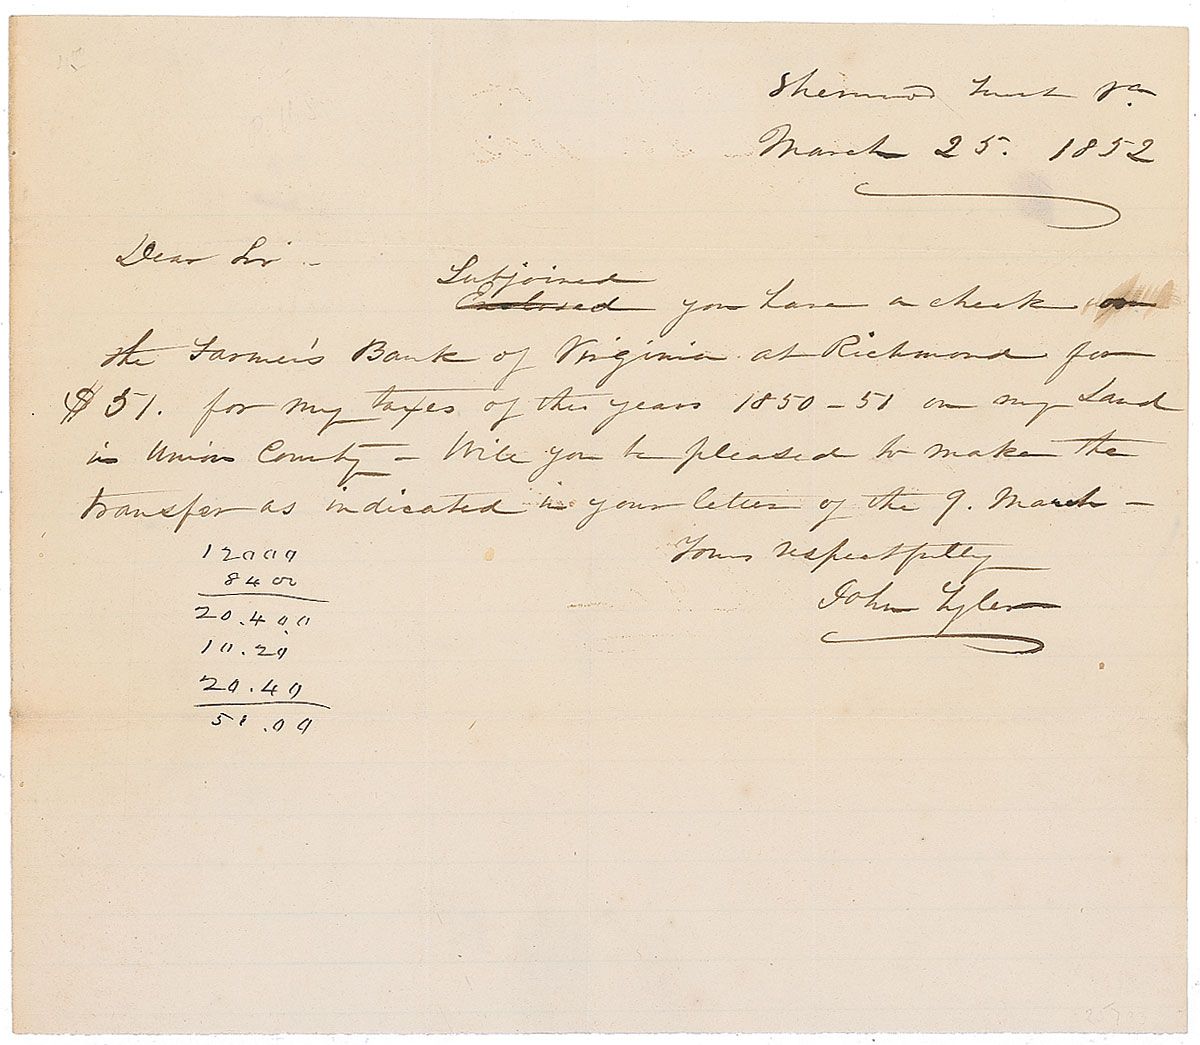 Sherwood Forest Va
March 25. 1852
Dear Sir -
Subjoined
Enclosed you have a check on
the Farmer's Bank of Virginia at Richmond for
$51. for my taxes of the years 1850-51 on my Land
in Union County - Will you be pleased to make the
transfer as indicated in your letter of the 9. March -
Yours respectfully
John Tyler
12000
8400
20.400
10.20
20.40
51.00